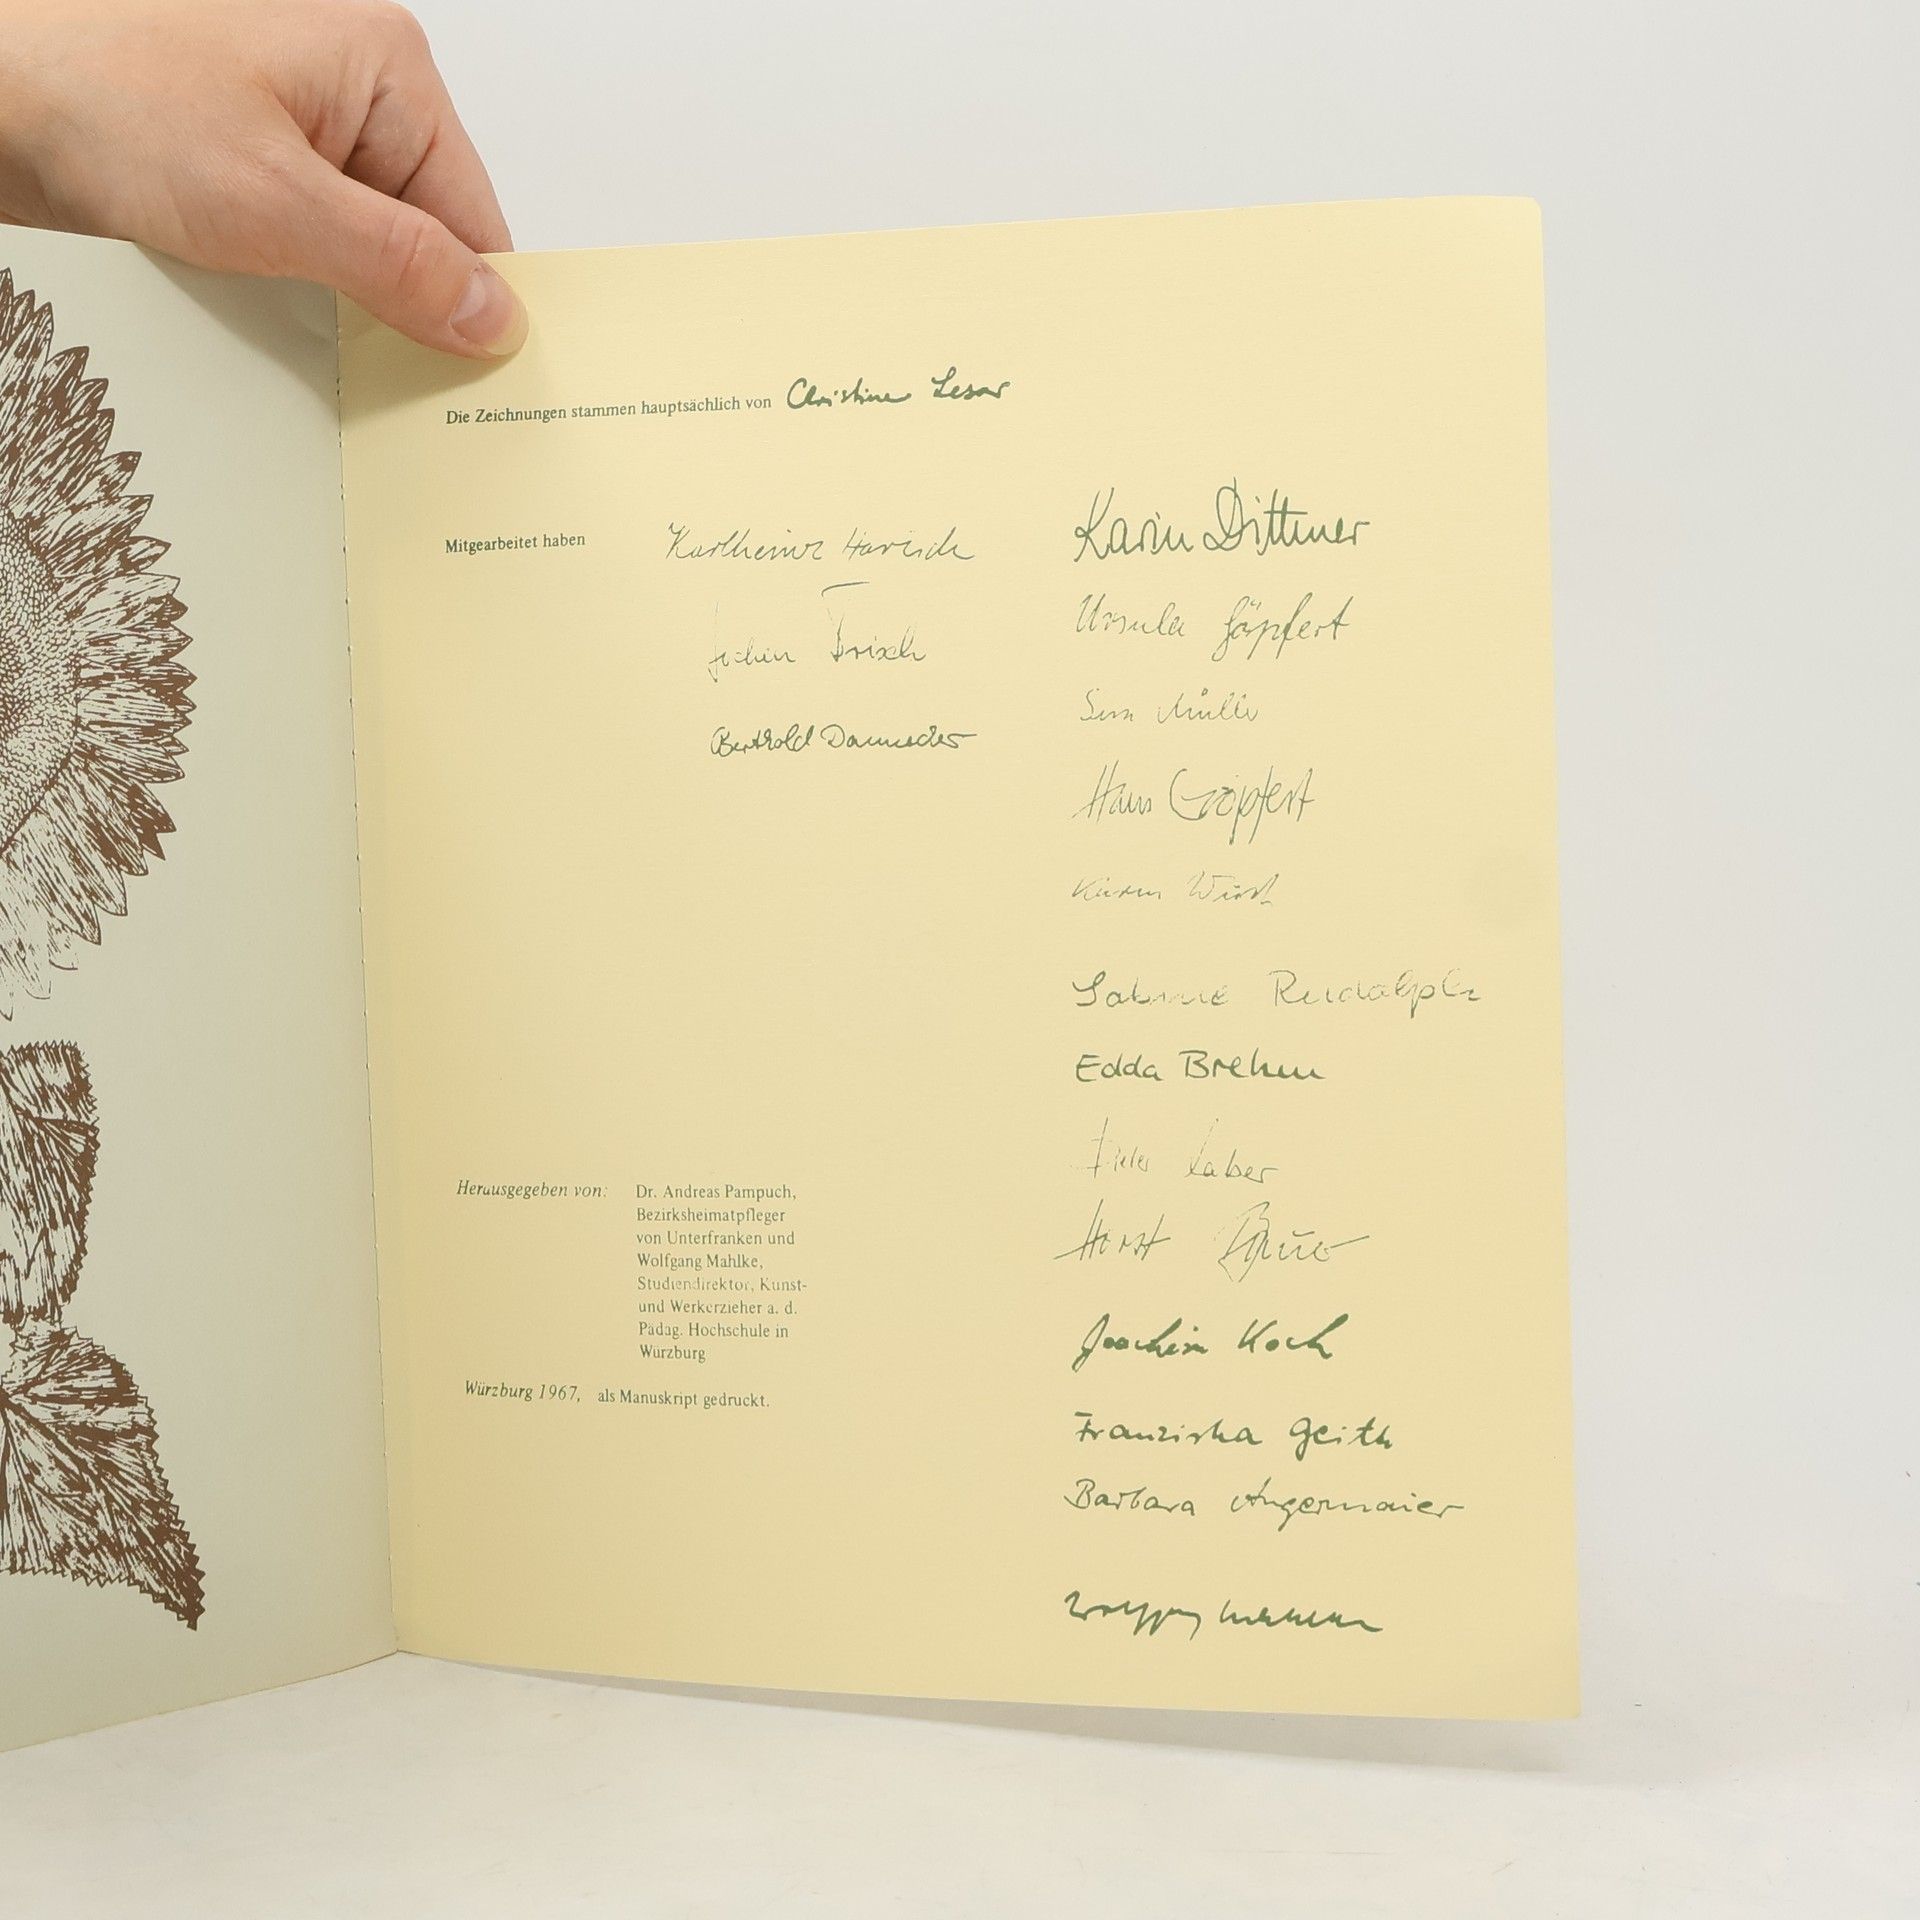 Die Zeichnungen stammen hauptsächlich von Christine Lesar
Mitgearbeitet haben
Karlheinz
Jochen
Berthold
Karin Dittmer
Ursula Göpfert
Hans Göpfert
Karin
Sabine Rudolph
Edda Brehm
Horst
Joachim Koch
Franziska Geith
Barbara Angermaier
Wolfgang Mahlke
Herausgegeben von: Dr. Andreas Pampuch,
Bezirksheimatpfleger
von Unterfranken und
Wolfgang Mahlke,
Studiendirektor, Kunst-
und Werkerzieher a. d.
Pädag. Hochschule in
Würzburg
Würzburg 1967, als Manuskript gedruckt.